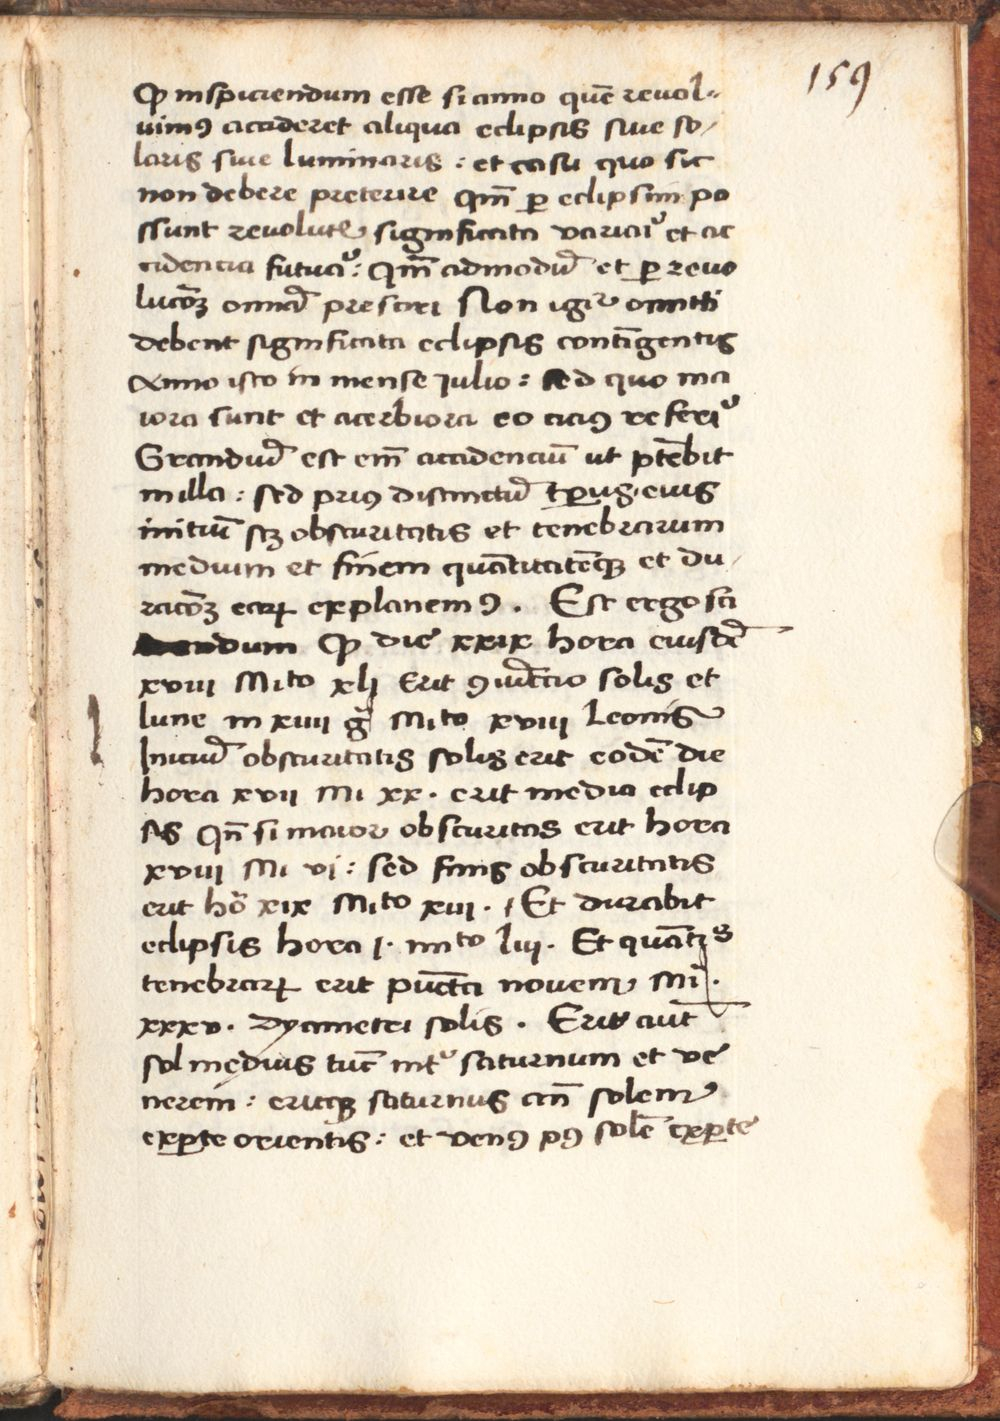 159
Ꝙ inspiciendum esse si anno quē reuol-
uimꝰ accaderet aliqua eclipsis siue so/
laris siue luminaris : et casu quo sic
non debere preterire qm̄ ꝑ eclipsim po
ssunt reuolute significata variari et ac
cidencia futura : Qm̄ admodū et ꝑ reuo
lucōꝫ omnia prescri Non igiᷣ omitti
debent significata eclipsis contīgentis
Anno isto in mense Iulio : sed quo ma
iora sunt et acerbiora eo ciciꝰ referiᷣ
Grandiū est em̄ accidenciū ut ptēbit
milla : sed priꝰ distinctū eius
initiū scꝫ obscuritatis et tenebrarum
medium et finem quātitatēqꝫ et du/
racōꝫ eaꝝ explanemꝰ . Est ergo sci
endum Ꝙ die xxix hora eiusdē
xviii Mito xlj Erit ꝯiūctio solis et
lune in xiiii g̃ Mito xviii Leonis
Iniciū obscuritatis solis erit eodē die
hora xvii Mi xx . erit media eclip
sis Qn̄ si maior obscuritas erit hora
xviii Mi vj : sed finis obscuritatis
erit hō xix Mito xiii . Et durabit
eclipsis hora j . mito liij . Et quātis
tenebraꝝ erit pūcta novem Mi .
xxxv . dyametri solis . Erit aūt
sol medius tūc intᷣ saturnum et ve
nerem : eritqꝫ saturnus an̄ solem
exꝑte orientis : et venꝰ pꝰ solē exꝑte